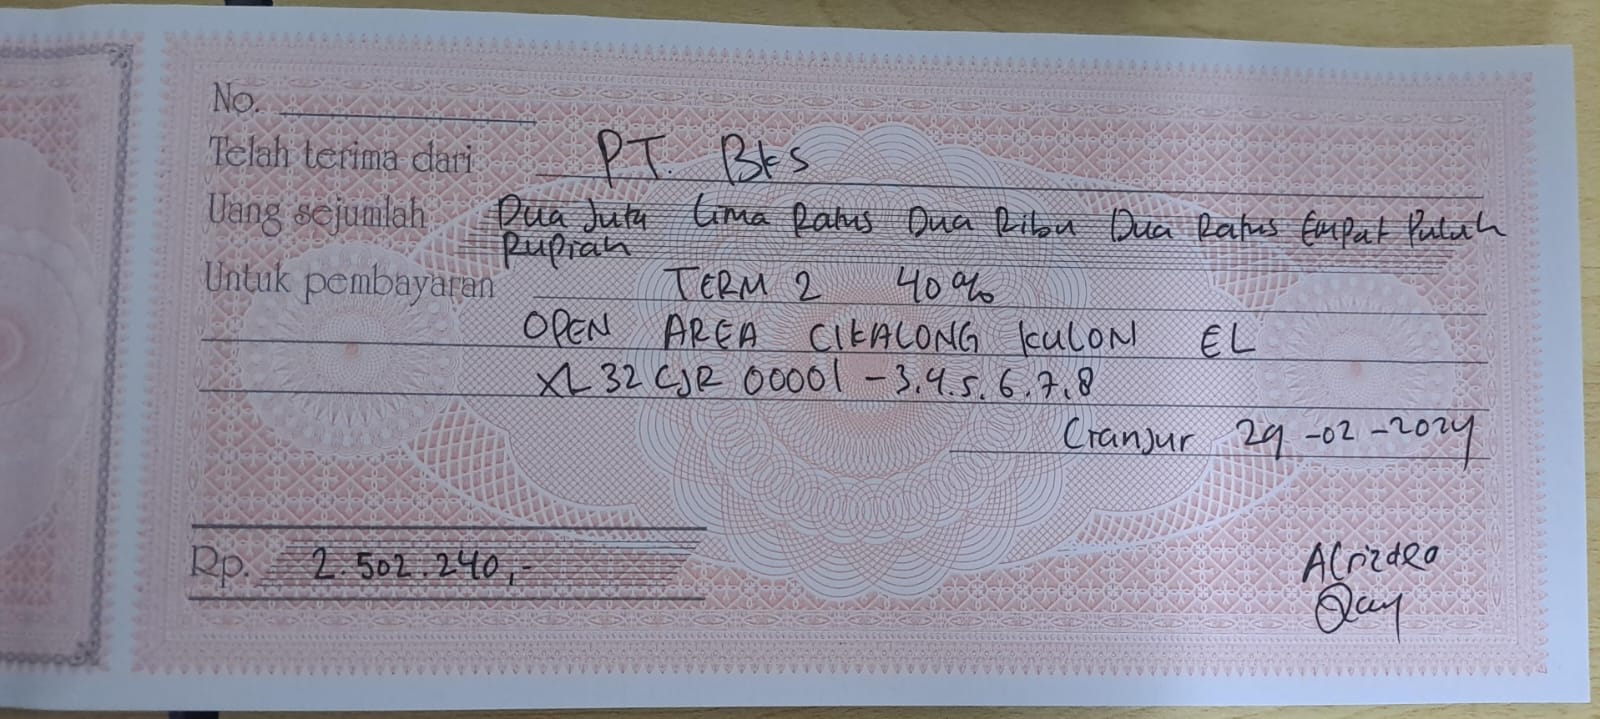 No.
Telah terima dari PT. BKS
Uang sejumlah Dua Juta Lima Ratus Dua Ribu Dua Ratus Empat Puluh
Rupiah
Untuk pembayaran TERM 2 40%
OPEN AREA CIKALONG KULON EL
XL 32 CJR 00001 - 3.4.5.6.7.8
Cianjur 29-02-2024
Rp. 2.502.240,-